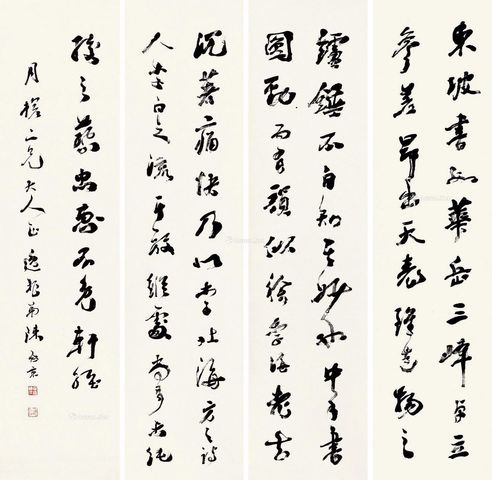 東坡書如華岳三峰卓立
參差昂出天表雖造物之
鑪錘不自知其妙也中年書
圓勁而有韻似徐季海老去
沉著痛快乃似李北海方之詩
人李白之流其放縱處尚多
之藝忠惠不免軒輊
月樵二兄大人正 弟陳